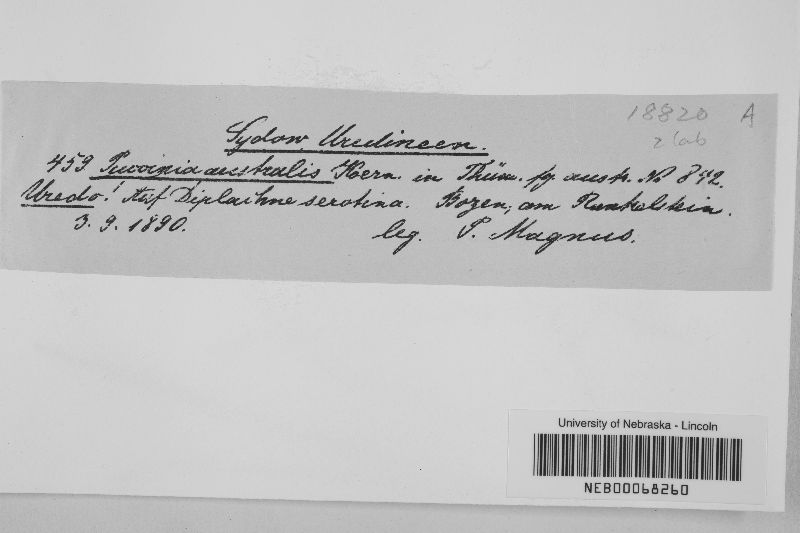 18820 A
2 lab
Sydow, Uredineen.
459 Puccinia australis Koern. in Thüm. fg. austr. No 842.
Uredo! Auf Diplachne serotina. Bozen, am Runkelstein.
3. 9. 1890.
leg. P. Magnus.
University of Nebraska - Lincoln
NEB00068260